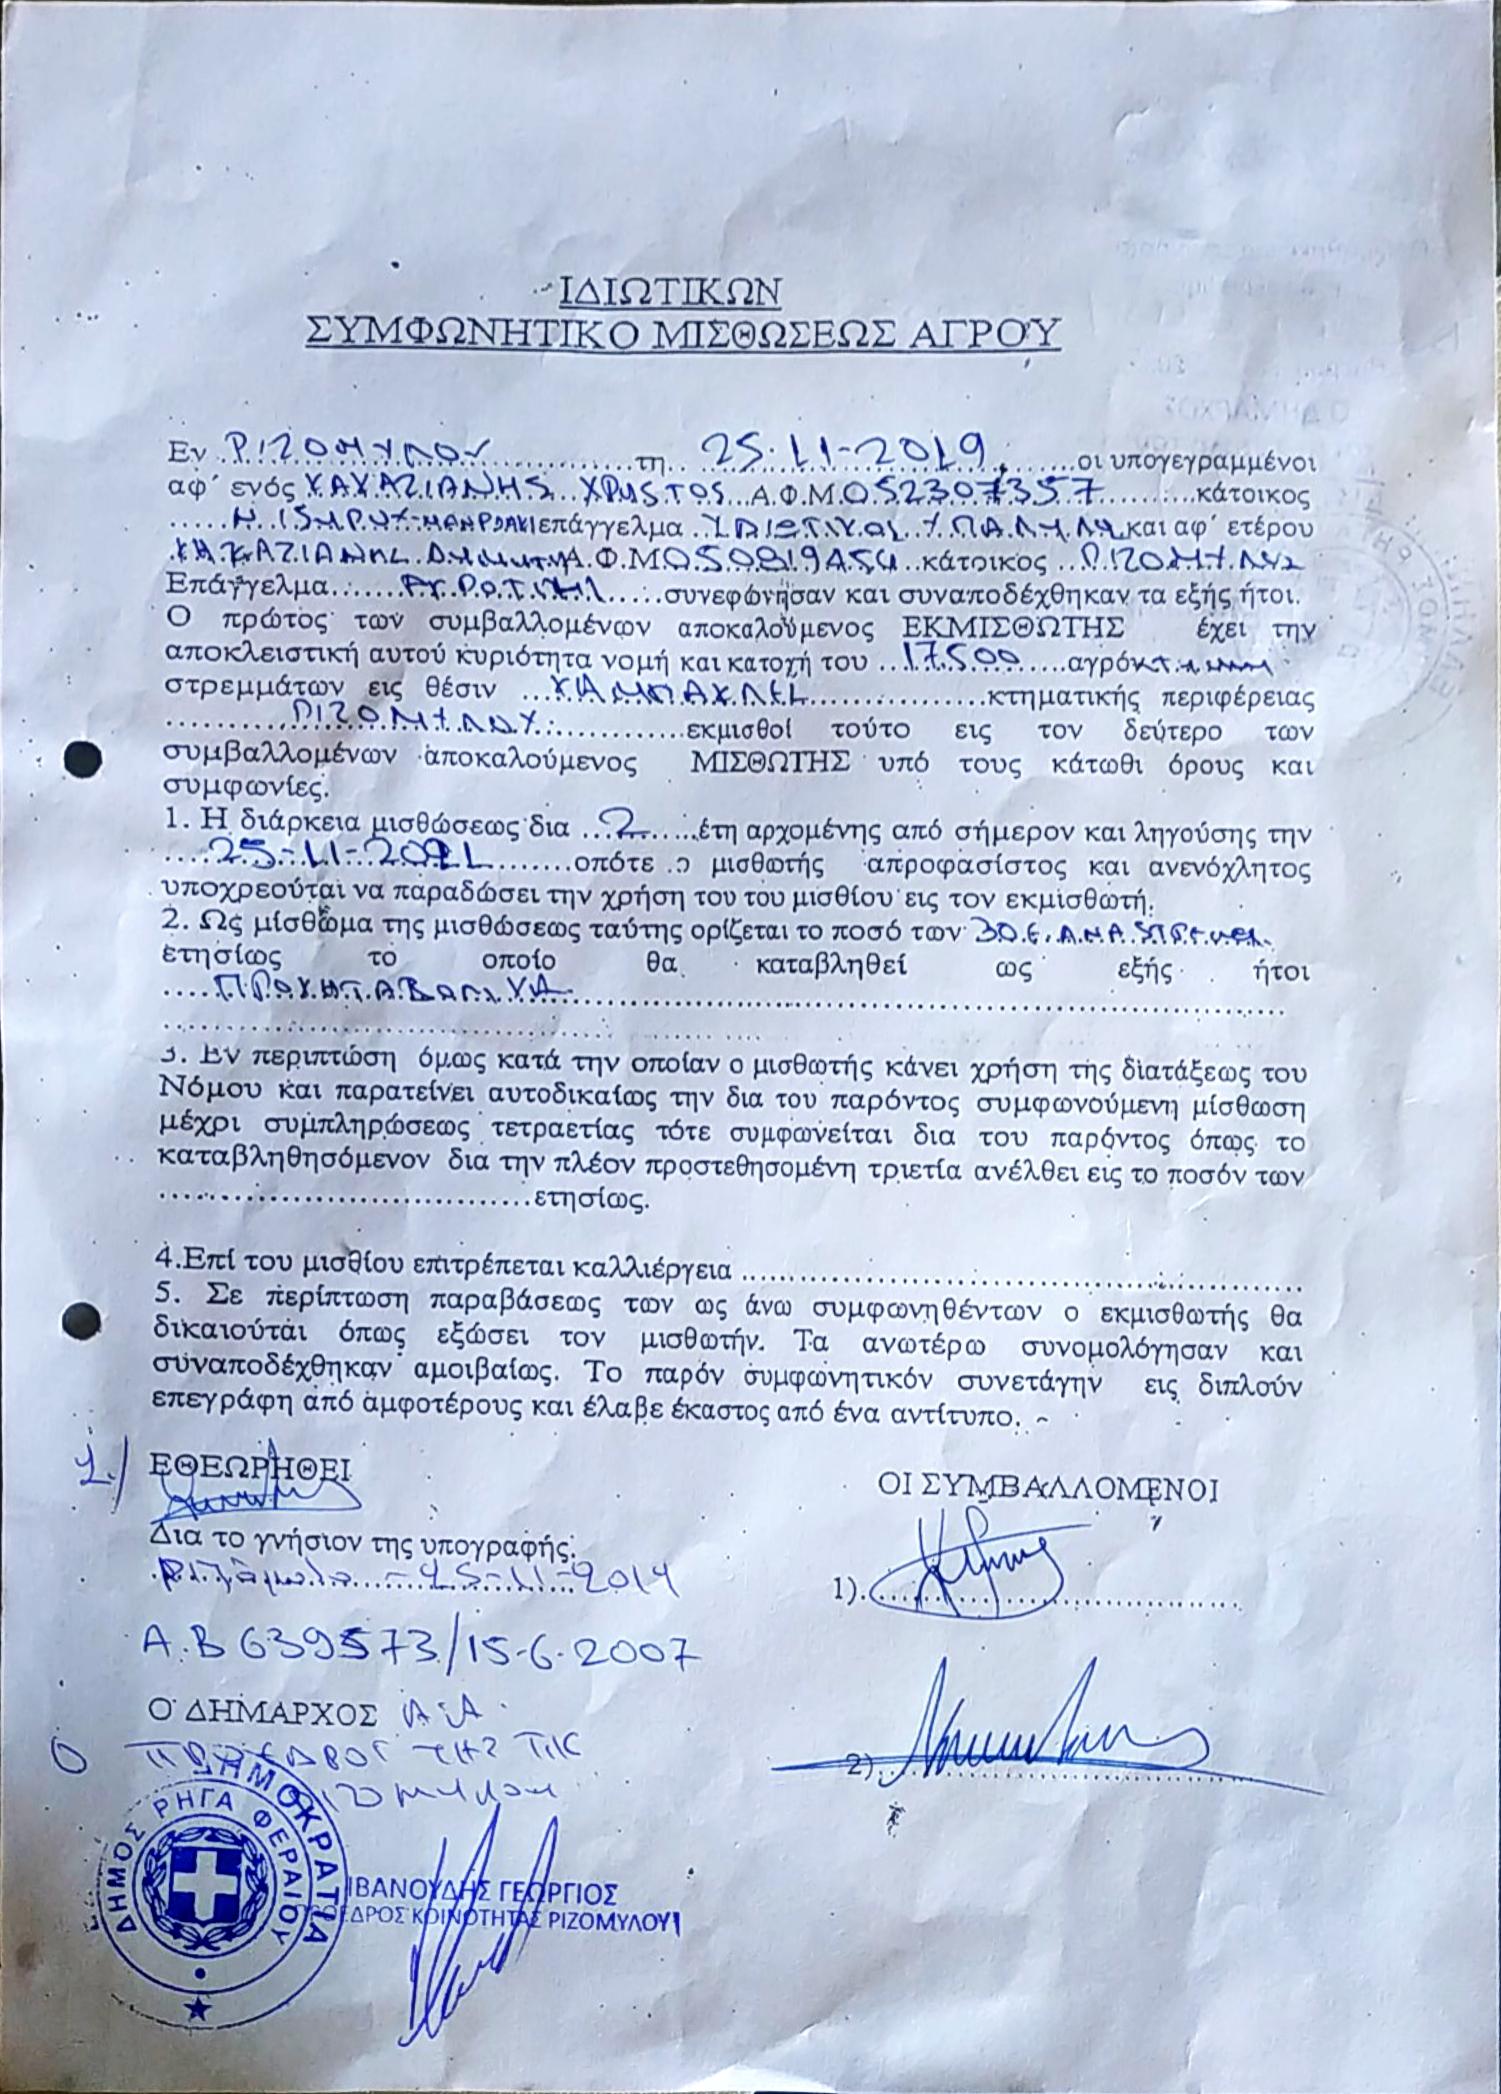 ΙΔΙΩΤΙΚΩΝ
ΣΥΜΦΩΝΗΤΙΚΟ ΜΙΣΘΩΣΕΩΣ ΑΓΡΟΥ
Εν ΡΙΖΟΜΥΛΟΥ τη 25-11-2019 οι υπογεγραμμένοι
αφ΄ ενός ΧΡΗΣΤΟΣ Α.Φ.Μ 052307357 κάτοικος
επάγγελμα και αφ΄ ετέρου
Α.Φ.Μ κάτοικος ΡΙΖΟΜΥΛΟΥ
Επάγγελμα συνεφώνησαν και συναποδέχθηκαν τα εξής ήτοι.
Ο πρώτος των συμβαλλομένων αποκαλούμενος ΕΚΜΙΣΘΩΤΗΣ έχει την
αποκλειστική αυτού κυριότητα νομή και κατοχή του 17500 αγρό
στρεμμάτων εις θέσιν κτηματικής περιφέρειας
ΡΙΖΟΜΥΛΟΥ εκμισθοί τούτο εις τον δεύτερο των
συμβαλλομένων αποκαλούμενος ΜΙΣΘΩΤΗΣ υπό τους κάτωθι όρους και
συμφωνίες.
1. Η διάρκεια μισθώσεως δια 2 έτη αρχομένης από σήμερον και ληγούσης την
25-11-2021 οπότε ο μισθωτής απροφασίστος και ανενόχλητος
υποχρεούται να παραδώσει την χρήση του του μισθίου εις τον εκμισθωτή.
2. Ως μίσθωμα της μισθώσεως ταύτης ορίζεται το ποσό των 30 € ΑΝΑ
ετησίως το οποίο θα καταβληθεί ως εξής ήτοι
3. Εν περιπτώση όμως κατά την οποίαν ο μισθωτής κάνει χρήση της διατάξεως του
Νόμου και παρατείνει αυτοδικαίως την δια του παρόντος συμφωνούμενη μίσθωση
μέχρι συμπληρώσεως τετραετίας τότε συμφωνείται δια του παρόντος όπως το
καταβληθησόμενον δια την πλέον προστεθησομένη τριετία ανέλθει εις το ποσόν των
ετησίως.
4.Επί του μισθίου επιτρέπεται καλλιέργεια
5. Σε περίπτωση παραβάσεως των ως άνω συμφωνηθέντων ο εκμισθωτής θα
δικαιούται όπως εξώσει τον μισθωτήν. Τα ανωτέρω συνομολόγησαν και
συναποδέχθηκαν αμοιβαίως. Το παρόν συμφωνητικόν συνετάγην εις διπλούν
επεγράφη από αμφοτέρους και έλαβε έκαστος από ένα αντίτυπο.
ΕΘΕΩΡΗΘΕΙ
ΟΙ ΣΥΜΒΑΛΛΟΜΕΝΟΙ
Δια το γνήσιον της υπογραφής.
1)
Α.Β 639573/15-6-2007
Ο ΔΗΜΑΡΧΟΣ
Ο ΠΡΟΕΔΡΟΣ ΤΗΣ Τ/Κ
2)
ΡΙΖΟΜΥΛΟΥ
ΔΗΜΟΚΡΑΤΙΑ
ΔΗΜΟΣ ΡΗΓΑ ΦΕΡΑΙΟΥ
ΙΒΑΝΟΥΔΗΣ ΓΕΩΡΓΙΟΣ
ΠΡΟΕΔΡΟΣ ΚΟΙΝΟΤΗΤΑΣ ΡΙΖΟΜΥΛΟΥ